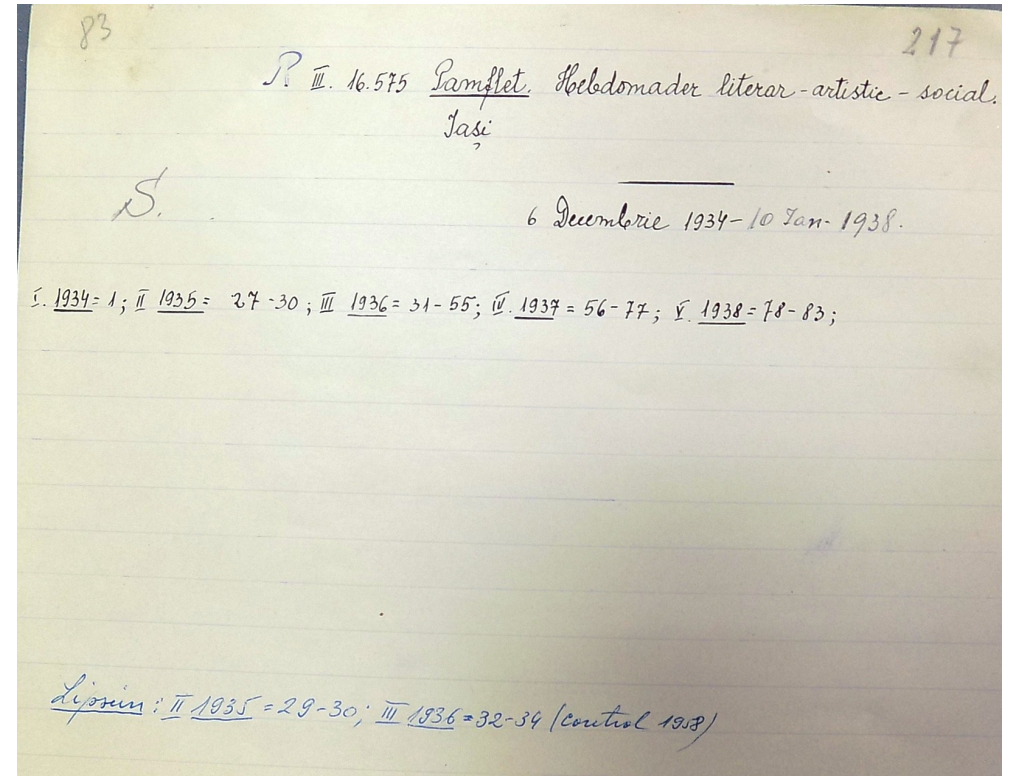 83
217
R III. 16.575 Pamflet. Hebdomader literar-artistic-social.
Iași
S.
6 Decembrie 1934-10 Ian- 1938.
I. 1934=1; II 1935= 27-30; III 1936=31-55; IV. 1937=56-77; V. 1938=78-83;
Lipsin: II 1935=29-30; III 1936=32-34 (control 1958)